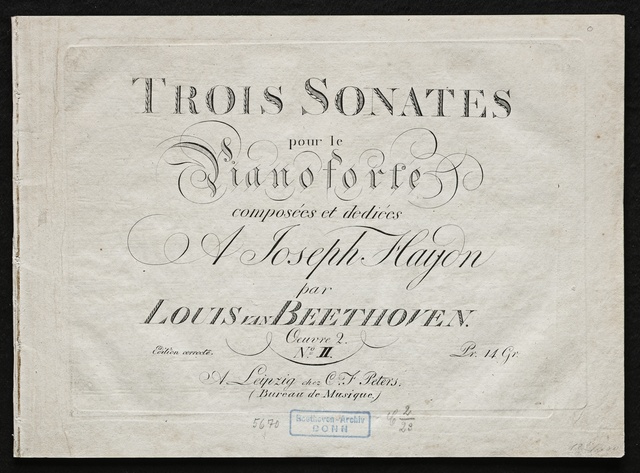 TROIS SONATES
pour le
Pianoforte
composées et dediées
A Joseph Haydn
par
LOUIS VAN BEETHOVEN.
Oeuvre 2.
Edition correcte. No. II. Pr. 14 Gr.
A Leipzig chez C. F. Peters.
(Bureau de Musique.)
5670
Beethoven-Archiv
BONN
2
29